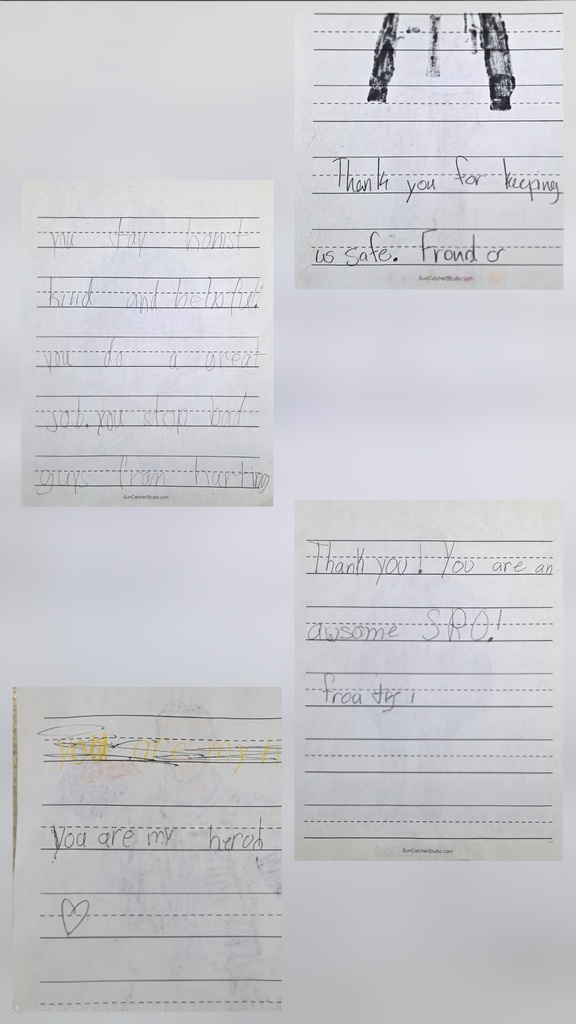 Thank you for keeping
us safe. Frond or
SunCatcherStudio.com
you stay honist
kind and helpful.
you do a great
job. you stop bad
guys from hurting
SunCatcherStudio.com
Thank you! You are an
awsome SRO!
SunCatcherStudio.com
you are my h
you are my hero